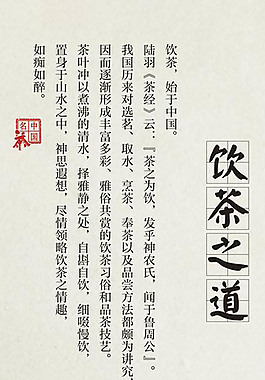 饮茶之道
饮茶，始于中国。
陆羽《茶经》云：『茶之为饮，发乎神农氏，闻于鲁周公』。
我国历来对选茗、取水、烹茶、奉茶以及品尝方法都颇为讲究，
因而逐渐形成丰富多彩、雅俗共赏的饮茶习俗和品茶技艺。
茶叶冲以煮沸的清水，择雅静之处，自斟自饮，细啜慢饮，
置身于山水之中，神思遐想，尽情领略饮茶之情趣，
如痴如醉。
中国
名茶